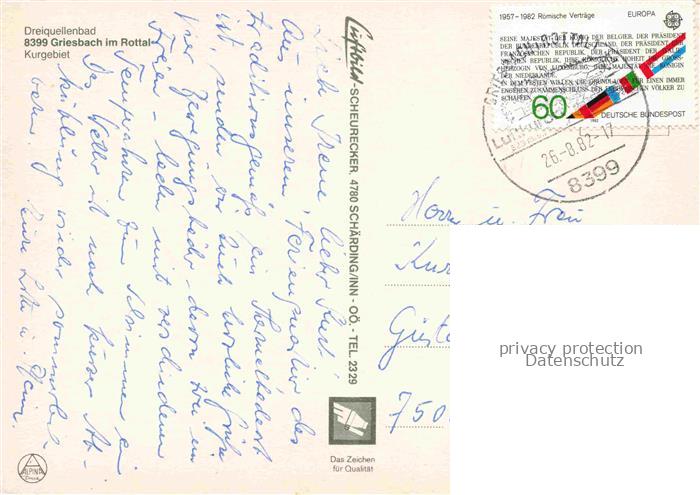 Dreiquellenbad
8399 Griesbach im Rottal
Kurgebiet
Luftbild-SCHEURECKER, 4780 SCHÄRDING/INN - OÖ. - TEL. 2329
1957-1982 Römische Verträge EUROPA
SEINE MAJESTÄT DER KÖNIG DER BELGIER, DER PRÄSIDENT
DER BUNDESREPUBLIK DEUTSCHLAND, DER PRÄSIDENT DER
FRANZÖSISCHEN REPUBLIK, DER PRÄSIDENT DER ITALIENISCHEN
REPUBLIK, IHRE KÖNIGLICHE HOHEIT DIE GROSS-
HERZOGIN VON LUXEMBURG, IHRE MAJESTÄT DIE KÖNIGIN
DER NIEDERLANDE.
IN DEM FESTEN WILLEN, DIE GRUNDLAGEN FÜR EINEN IMMER
ENGEREN ZUSAMMENSCHLUSS DER EUROPÄISCHEN VÖLKER ZU
SCHAFFEN,
60
1982
DEUTSCHE BUNDESPOST
26.-8.82-17
8399
Liebe Irene, lieber Kurt!
Aus unserem Ferienquartier, das
traditionsgemäß ein Thermalbad
ist, senden wir Euch herzliche Grüße
hier
Freie baden mit verschiedenen
Temperaturen zum Schwimmen ein
Das Wetter ist nach kurzer Ab-
kühlung wieder sommerlich
Eure
Herrn u. Frau
Kur
Güste
750
Das Zeichen
für Qualität
ALPINA
privacy protection
Datenschutz